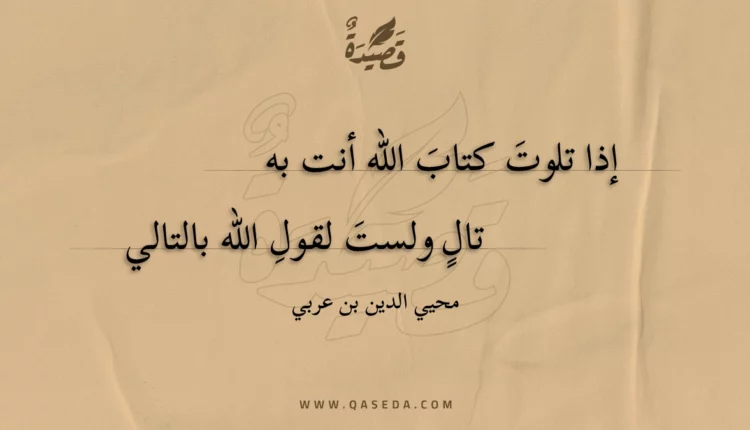 قَصِيْدَةٌ
إذا تلوتَ كتابَ الله أنت به
تالٍ ولستَ لقولِ الله بالتالي
محيي الدين بن عربي
WWW.QASEDA.COM